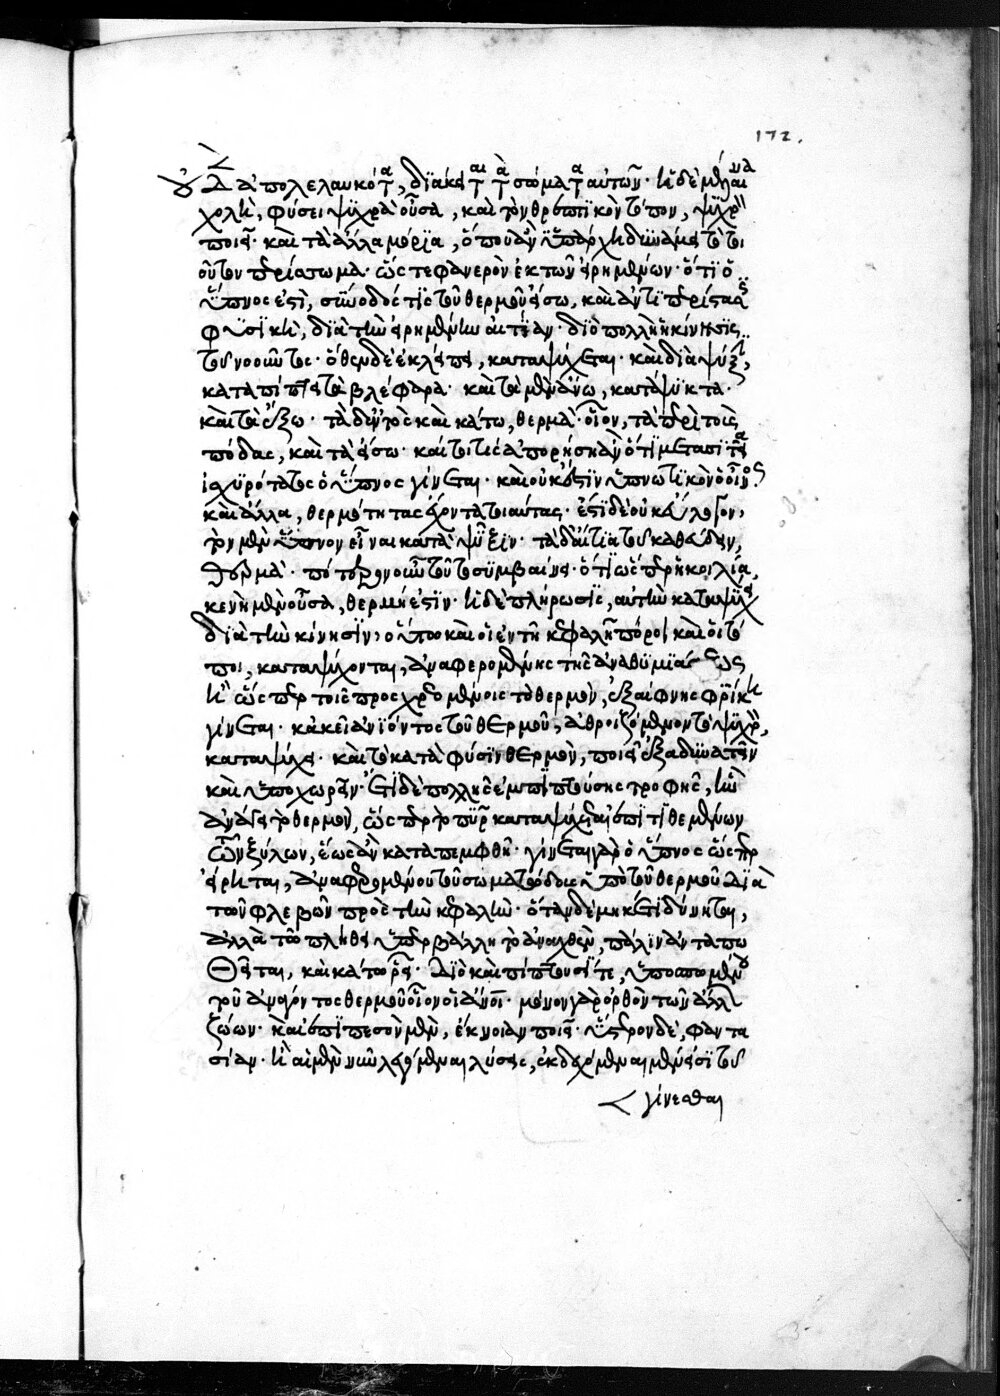 172.
δ ἀπολελαυκότα, διάκειται τὰ στόματα αὐτῶν· ἡ δὲ μέλαινα
χολὴ, φύσει ψυχρὰ οὖσα, καὶ τὸν θρεπτικὸν τόπον, ψυχρὸν
ποιεῖ· καὶ τὰ ἄλλα μόρια, ὅπου ἂν ὑπάρχη δυνάμει τὸ τοι
οῦτον περίττωμα· ὥστε φανερὸν ἐκ τῶν εἰρημένων· ὅτι ὁ
ὕπνος ἐστὶ, σύνοδός τις τοῦ θερμοῦ εἴσω, καὶ ἀντιπερίστασις
φυσικὴ, διὰ τὴν εἰρημένην αἰτίαν· διὸ πολλὴ ἡ κίνησις
τοῦ νοοῦντος· ὅθεν δὲ ἐκλείπει, καταψύχεται· καὶ διὰ ψύξιν,
καταπίπτει τὰ βλέφαρα· καὶ τὰ μὲν ἄνω, κατάψυκτα·
καὶ τὰ ἔξω· τὰ δ' ἐντὸς καὶ κάτω, θερμά· οἷον, τὰ περὶ τοὺς
πόδας, καὶ τὰ εἴσω· καίτοι τις ἀπορήσειεν ἂν ὅτι μετὰ σιτία
ἰσχυρότατος ὁ ὕπνος γίνεται· καὶ οὐκ ἔστιν ὑπνωτικὸν ὁ οἶνος
καὶ ἄλλα, θερμότητας ἔχοντα τοιαύτας· ἔστι δὲ οὐκ εὔλογον,
τὸν μὲν ὕπνον εἶναι κατάψυξιν· τὰ δ' αἴτια τοῦ καθεύδειν,
θερμά· πότερον οὖν τοῦτο συμβαίνει· ὅτι ὥσπερ ἡ κοιλία,
κενὴ μὲν οὖσα, θερμή ἐστιν· ἡ δὲ πλήρωσις, αὐτὴν καταψύχει
διὰ τὴν κίνησιν, οὕτω καὶ οἱ ἐν τῆ κεφαλῆ πόροι καὶ οἱ τό
ποι, καταψύχονται, ἀναφερομένης τῆς ἀναθυμιάσεως
ἢ ὥσπερ τοῖς προσχεομένοις τὸ θερμὸν, ἐξαίφνης φρίκη
γίνεται· κἀκεῖ ἀνιόντος τοῦ θερμοῦ, ἀθροιζόμενον τὸ ψυχρὸν,
καταψύχει· καὶ τὸ κατὰ φύσιν θερμὸν, ποιεῖ ἐξαδυνατεῖν
καὶ ὑποχωρεῖν· ἔτι δὲ πολλῆς ἐμπιπτούσης τροφῆς, ἣν
ἀνάγει τὸ θερμὸν, ὥσπερ τὸ πῦρ καταψύχεται ἐπιτιθεμένων
τῶν ξύλων, ἕως ἂν καταπεμφθῆ· γίνεται γὰρ ὁ ὕπνος ὥσπερ
εἴρηται, ἀναφερομένου τοῦ σωματώδους ὑπὸ τοῦ θερμοῦ διὰ
τῶν φλεβῶν πρὸς τὴν κεφαλήν· ὅταν δὲ μηκέτι δύνηται,
ἀλλὰ τῶ πλήθει ὑπερβάλλη τὸ ἀναχθὲν, πάλιν ἀνταπω
θεῖται, καὶ κάτω ῥεῖ· διὸ καὶ πίπτουσί τε, ὑποσπωμένου
τοῦ ἀνάγοντος θερμοῦ οἷον οἱ ἄνθρωποι· μόνον γὰρ ὀρθὸν τῶν ἄλλων
ζώων· καὶ ἐπιπεσὸν μὲν, ἔκνοιαν ποιεῖ· ὕστερον δὲ, φαντα
σίαν· ἢ αἱ μὲν νῦν λεγόμεναι λύσεις, ἐνδεχόμεναι μέν εἰσι τοῦ
γίνεσθαι